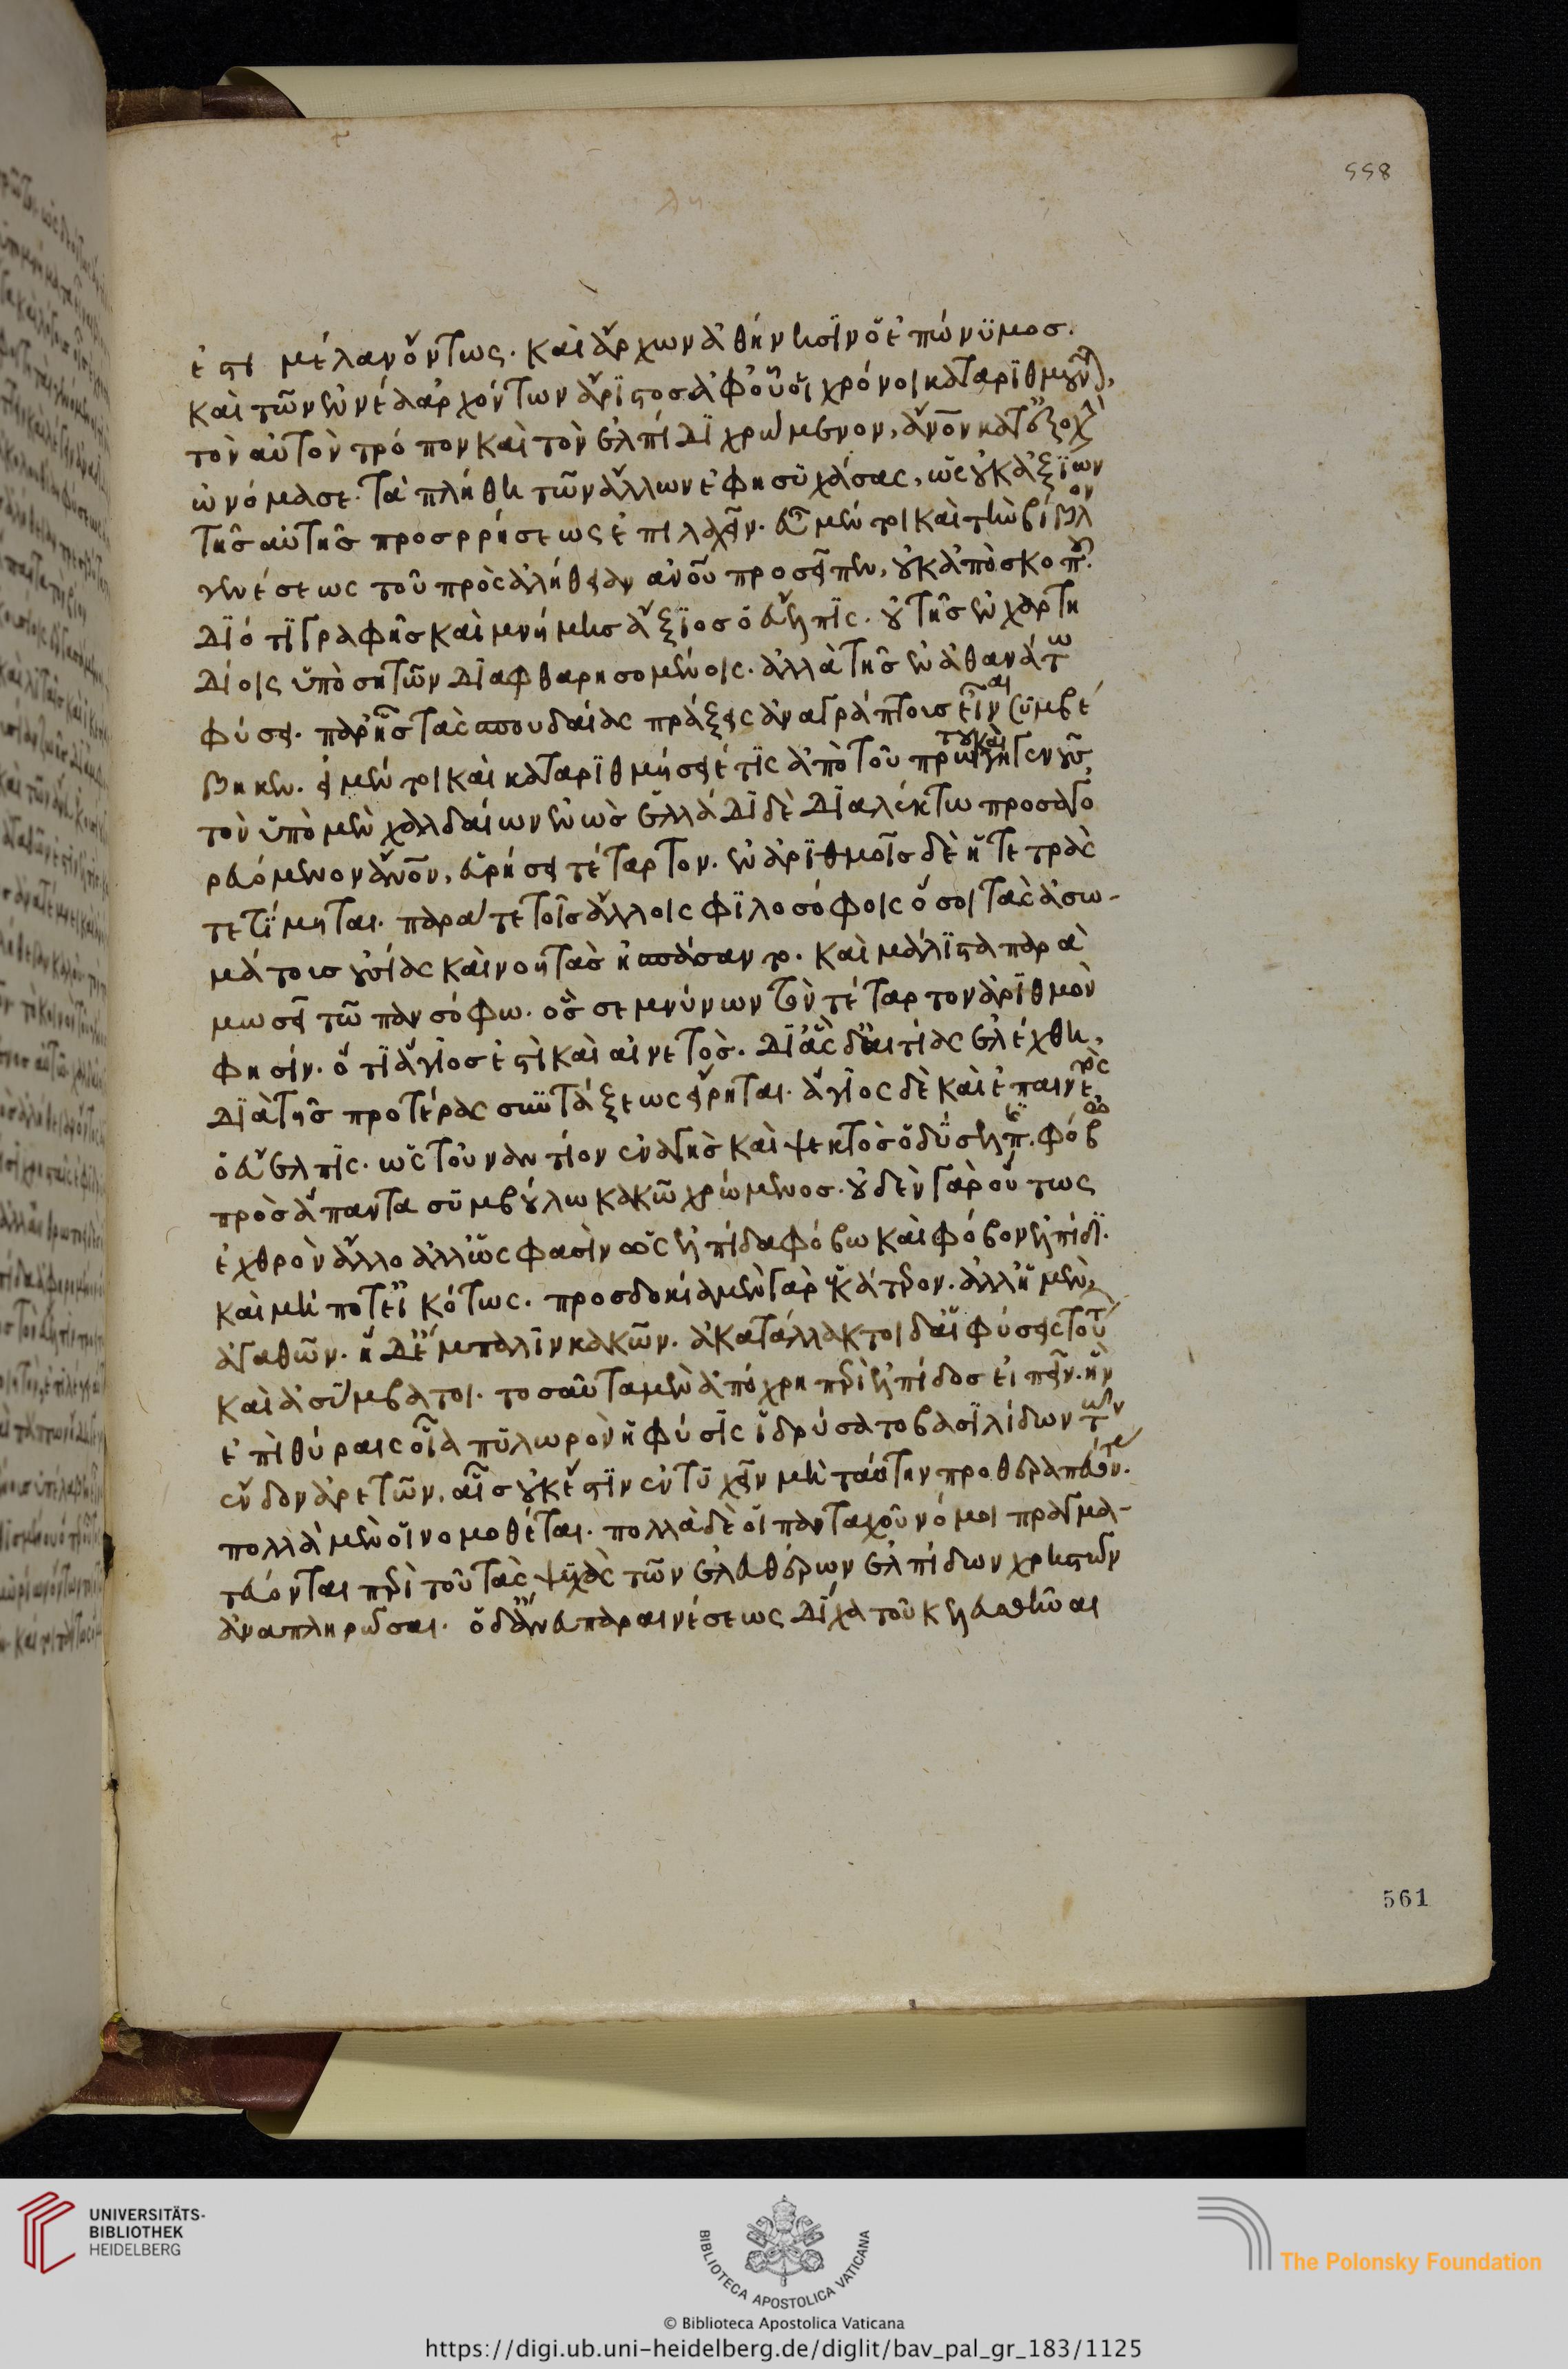 558
ἐστι μέλαν ὄντως. καὶ ἄρχων ἀθήνησϊν ὁ ἐπώνϋμοσ.
καὶ τῶν ἐννέα ἀρχόντων ἄρϊστοσ ἀφ' οὗ οἱ χρόνοι καταρϊθμοῦνται,
τὸν αὐτὸν τρόπον καὶ τὸν ἐλπίδϊ χρώμενον, ἄνον κατ' ἐξοχὴν
ὠνόμασε. τὰ πλήθη τῶν ἄλλων ἐφησϋχάσας, ὡς οὐκ ἀξϊων
τῆσ αὐτῆσ προσρρήσεως ἐπιλαχεῖν. εὖ μέντοι καὶ τὴν βίβλον
γενέσεως τοῦ πρὸς ἀλήθειαν ἀνου προσεῖπεν, οὐκ ἀπὸ σκοποῦ.
δϊότϊ γραφῆσ καὶ μνήμησ ἄξϊοσ ὁ εὔελπϊς. οὐ τῆσ ἐν χαρτη
δίοις ὑπὸ σητῶν δϊαφθαρησομένοις. ἀλλὰ τῆσ ἐν ἀθανάτω
φύσει. παρ' ἧσ τὰς σπουδαίας πράξεις ἀναγράπτοισ εἶναι σϋμβέ
βηκεν. εἰ μέντοι καὶ καταρϊθμήσειέ τϊς ἀπὸ τοῦ πρώτου καὶ γηγενοῦς,
τὸν ὑπὸ μὲν χαλδαίων ἐνὼσ ἑλλάδϊ δὲ δϊαλέκτω προσαγο
ρευόμενον ἄνον, εὑρήσει τέταρτον. ἐν ἀρϊθμοῖσ δὲ ἡ τετρὰς
τετϊμηται. παρά τε τοῖσ ἄλλοις φϊλοσόφοις ὅσοι τὰς ἀσω-
μάτοισ οὐσίας καὶ νοητὰσ ἠσπάσαντο. καὶ μάλϊστα παρὰ
μωσεῖ τῶ πανσόφω. ὃσ σεμνύνων τὸν τέταρτον ἀρϊθμὸν
φησίν. ὅτϊ ἅγϊοσ ἐστὶ καὶ αἰνετὸσ. δϊ' ἃς δ' αἰτίας ἐλέχθη,
δϊὰ τῆσ προτέρας σϋντάξεως εἴρηται. ἅγϊος δὲ καὶ ἐπαινετὸς
ὁ εὔελπϊς. ὡς τοὐναντίον ἐναγὴσ καὶ ψεκτὸσ ὁ δύσελπϊς. φόβω
πρὸσ ἅπαντα σϋμβούλω κακῶ χρώμενοσ. οὐδὲν γὰρ οὕτως
ἐχθρὸν ἄλλο ἄλλω φασὶν ὡς ἐλπίδα φόβω καὶ φόβον ἐλπίδϊ.
καὶ μή ποτ' εἰκότως. προσδοκία μὲν γὰρ ἑκάτερον. ἀλλ' ἡ μὲν
ἀγαθῶν. ἡ δ' ἔμπαλϊν κακῶν. ἀκατάλλακτοι δ' αἱ φύσεις τούτων
καὶ ἀσύμβατοι. τοσαῦτα μὲν ἀπόχρη περὶ ἐλπίδοσ εἰπεῖν. ἣν
ἐπὶ θύραις οἷα πϋλωρὸν ἡ φύσϊς ἱδρύσατο βασϊλίδων τῶν
ἔνδον ἀρετῶν, αἷσ οὐκ ἔστϊν ἐντϋχεῖν μὴ ταύτην προθεραπεύοντα.
πολλὰ μὲν οἱ νομοθέται. πολλὰ δὲ οἱ πανταχοῦ νόμοι πραγμα-
τεύονται περὶ τοῦ τὰς ψϋχὰς τῶν ἐλευθέρων ἐλπίδων χρηστῶν
ἀναπληρῶσαι. ὁ δ' ἄνευ παραινέσεως δϊχα τοῦ κελευσθῆναι
561
UNIVERSITÄTS-
BIBLIOTHEK
HEIDELBERG
BIBLIOTECA APOSTOLICA VATICANA
The Polonsky Foundation
© Biblioteca Apostolica Vaticana
https://digi.ub.uni-heidelberg.de/diglit/bav_pal_gr_183/1125